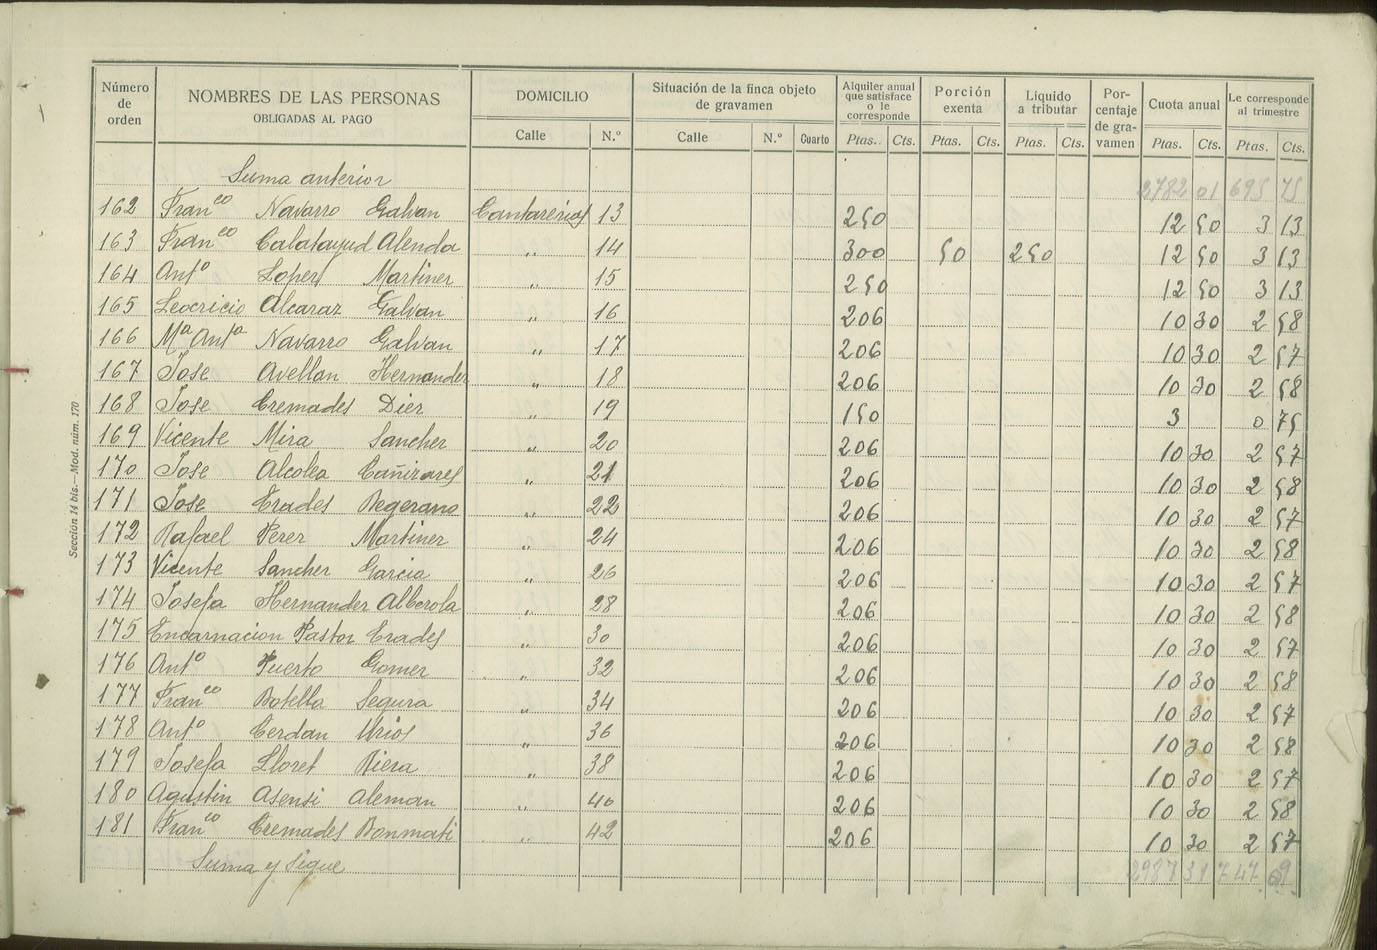 Número de orden | NOMBRES DE LAS PERSONAS OBLIGADAS AL PAGO | DOMICILIO | Situación de la finca objeto de gravamen | Alquiler anual que satisface o le corresponde | Porción exenta | Líquido a tributar | Por-centaje de gra-vamen | Cuota anual | Le corresponde al trimestre
Calle | N.º | Calle | N.º | Cuarto | Ptas. | Cts. | Ptas. | Cts. | Ptas. | Cts. | Ptas. | Cts. | Ptas. | Cts.
Suma anterior 2782 01 695 75
162 Franco Navarro Galvan Cantarerias 13 250 12 50 3 13
163 Franco Calatayud Alenda " 14 300 50 250 12 50 3 13
164 Anto Lopez Martinez " 15 250 12 50 3 13
165 Leocricio Alcaraz Galvan " 16 206 10 30 2 58
166 Ma Anta Navarro Galvan " 17 206 10 30 2 57
167 Jose Avellan Hernandez " 18 206 10 30 2 58
168 Jose Cremades Diez " 19 150 3 0 75
169 Vicente Mira Sanchez " 20 206 10 30 2 57
170 Jose Alcolea Cañizares " 21 206 10 30 2 58
171 Jose Erades Begerano " 22 206 10 30 2 57
172 Rafael Perez Martinez " 24 206 10 30 2 58
173 Vicente Sanchez Garcia " 26 206 10 30 2 57
174 Josefa Hernandez Alberola " 28 206 10 30 2 58
175 Encarnacion Pastor Erades " 30 206 10 30 2 57
176 Anto Puerto Gomez " 32 206 10 30 2 58
177 Franco Botella Segura " 34 206 10 30 2 57
178 Anto Cerdan Urios " 36 206 10 30 2 58
179 Josefa Lloret Riera " 38 206 10 30 2 57
180 Agustin Asensi Aleman " 40 206 10 30 2 58
181 Franco Cremades Bonmati " 42 206 10 30 2 57
Suma y sigue 2987 31 747 09
Sección 14 bis.—Mod. núm. 170